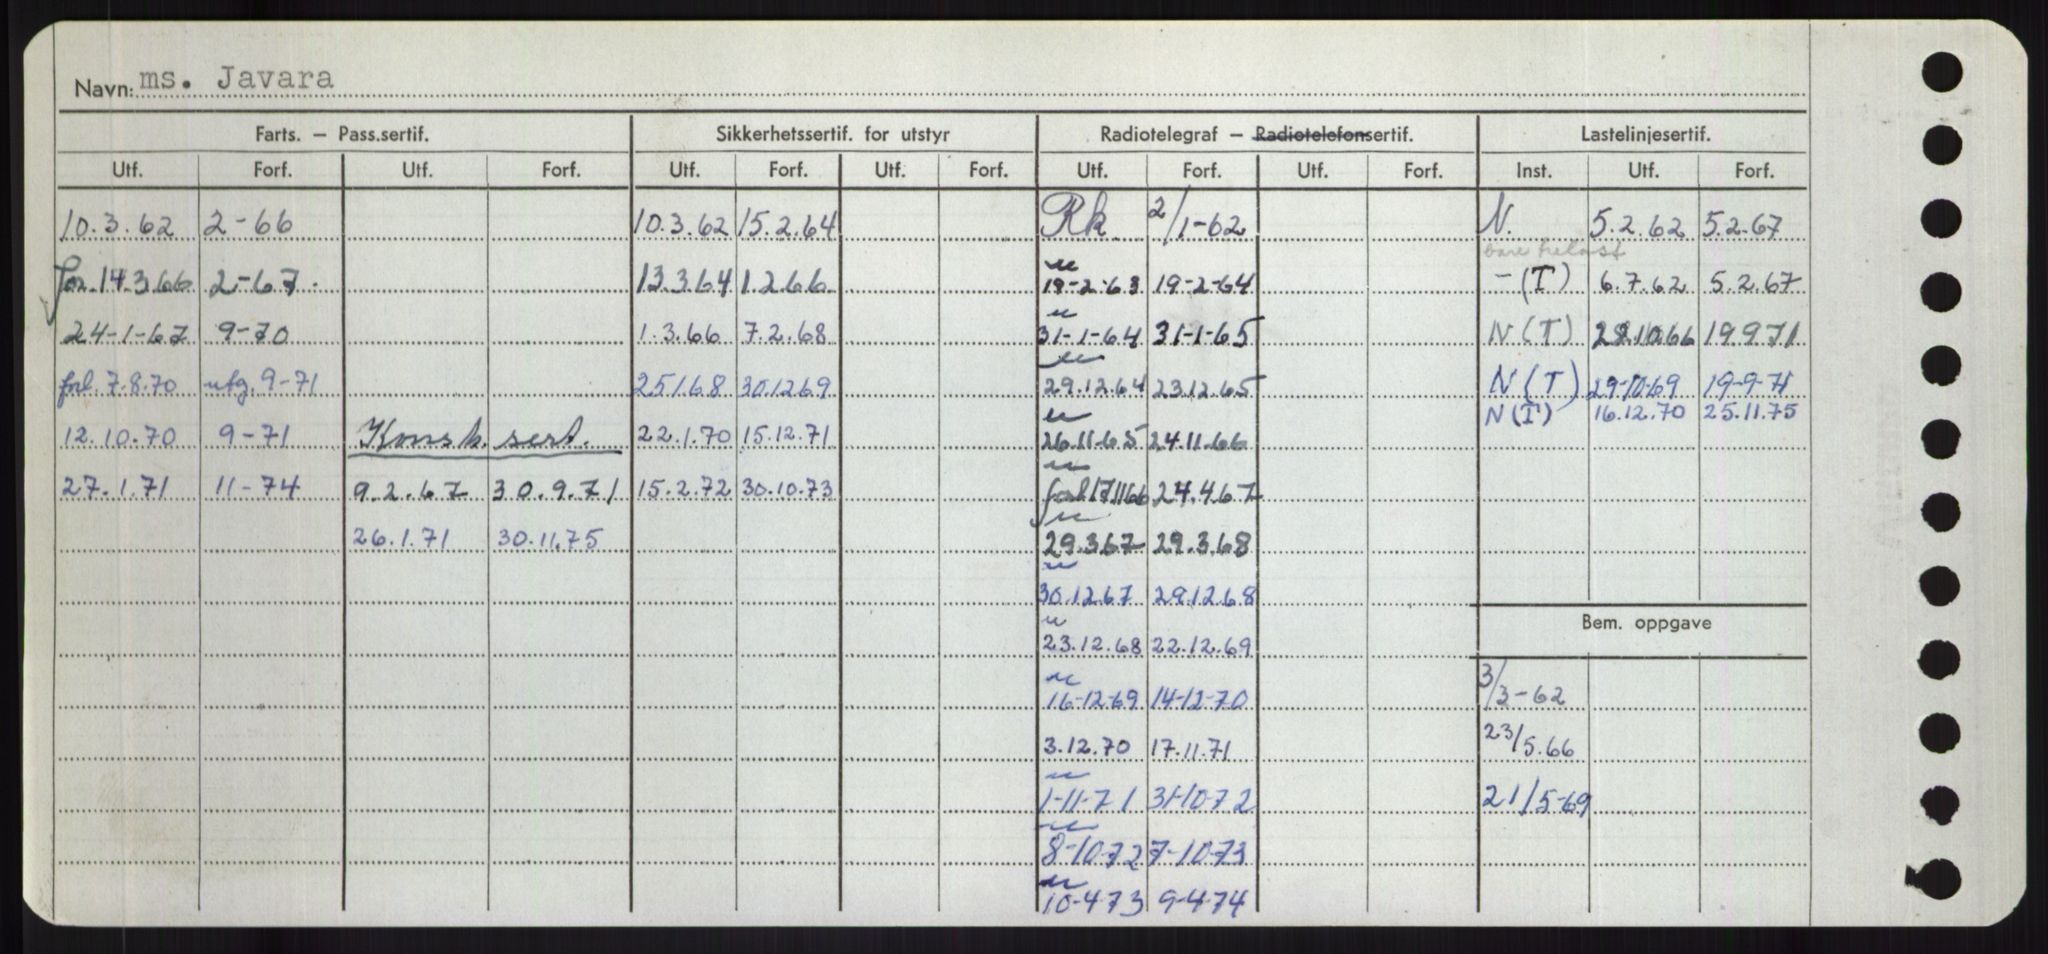 Navn: ms. Javara
Farts. – Pass.sertif. Sikkerhetssertif. for utstyr Radiotelegraf – Radiotelefonsertif. Lastelinjesertif.
Utf. Forf. Utf. Forf. Utf. Forf. Utf. Forf. Utf. Forf. Utf. Forf. Inst. Utf. Forf.
10.3.62 2-66 10.3.62 15.2.64 Rk 2/1-62 N. 5.2.62 5.2.67
14.3.66 2-67. 13.3.64 1.2.66 " 19-2-63 19-2-64 -(T) 6.7.62 5.2.67
24-1-67 9-70 1.3.66 7.2.68 " 31-1-64 31-1-65 N(T) 28.10.66 19 9 71
forl. 7.8.70 utg. 9-71 25.1.68 30.12.69 " 29.12.64 23.12.65 N(T) 29-10-69 19-9-71
N(T) 16.12.70 25.11.75
12.10.70 9-71 Konsk. sert. 22.1.70 15.12.71 " 26.11.65 24.11.66
27.1.71 11-74 9.2.67 30.9.71 15.2.72 30.10.73 " forl. 17.11.66 24.4.67
26.1.71 30.11.75 " 29.3.67 29.3.68
" 30.12.67 29.12.68
Bem. oppgave
" 23.12.68 22.12.69
" 16-12-69 14-12-70 3/3-62
3.12.70 17.11.71 23/5.66
" 1-11-71 31-10-72 21/5-69
" 8-10-72 7-10-73
" 10-4-73 9-4-74